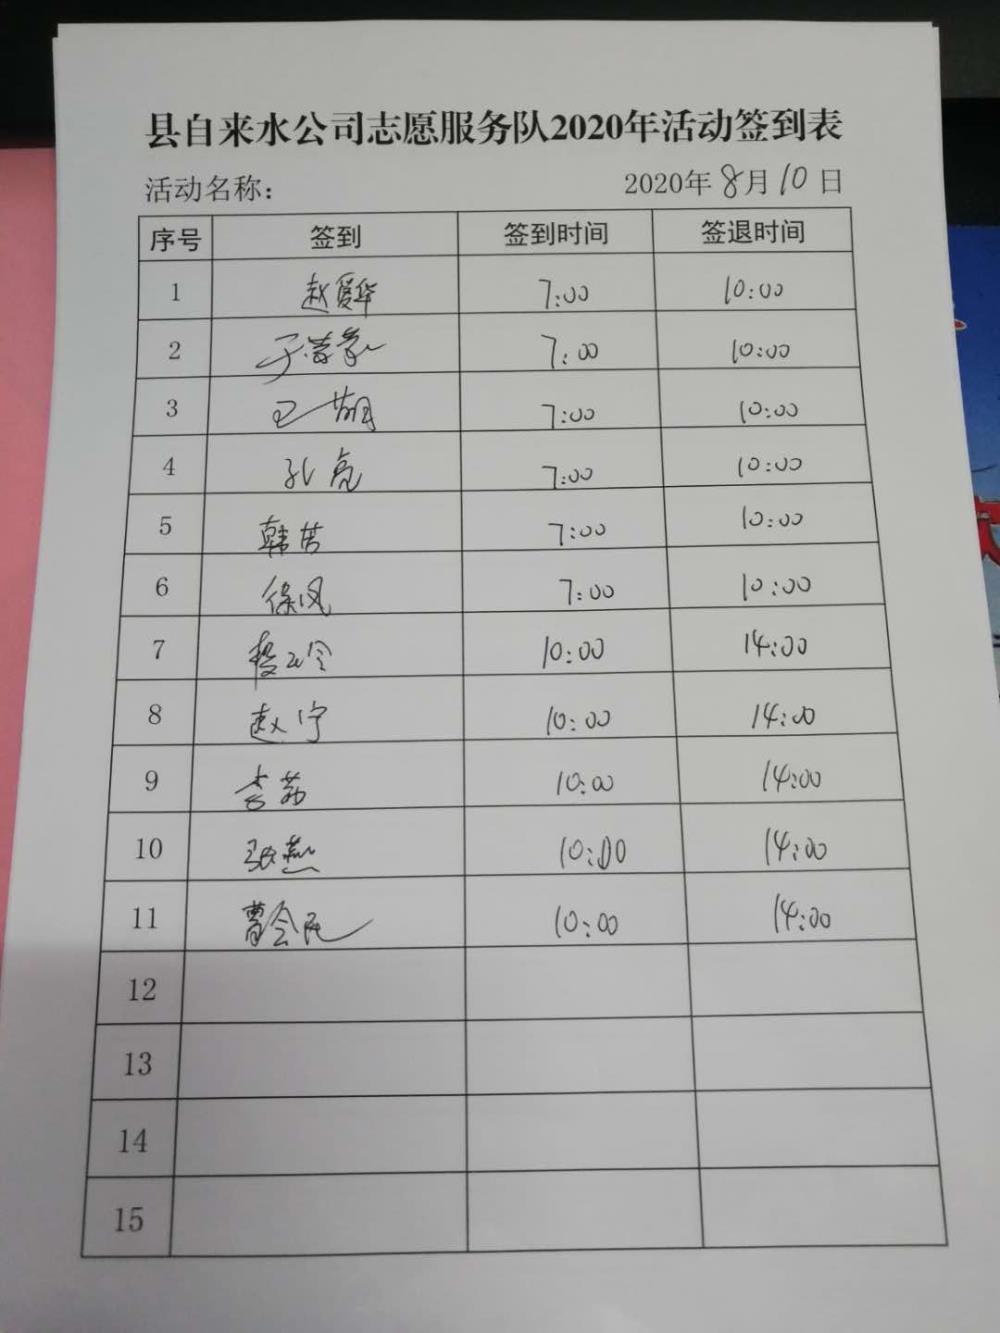 县自来水公司志愿服务队2020年活动签到表
活动名称： 2020年8月10日
序号 签到 签到时间 签退时间
1 赵爱华 7:00 10:00
2 7:00 10:00
3 7:00 10:00
4 孔亮 7:00 10:00
5 韩芸 7:00 10:00
6 徐凤 7:00 10:00
7 10:00 14:00
8 赵宁 10:00 14:00
9 李荔 10:00 14:00
10 张燕 10:00 14:00
11 曹会民 10:00 14:00
12
13
14
15